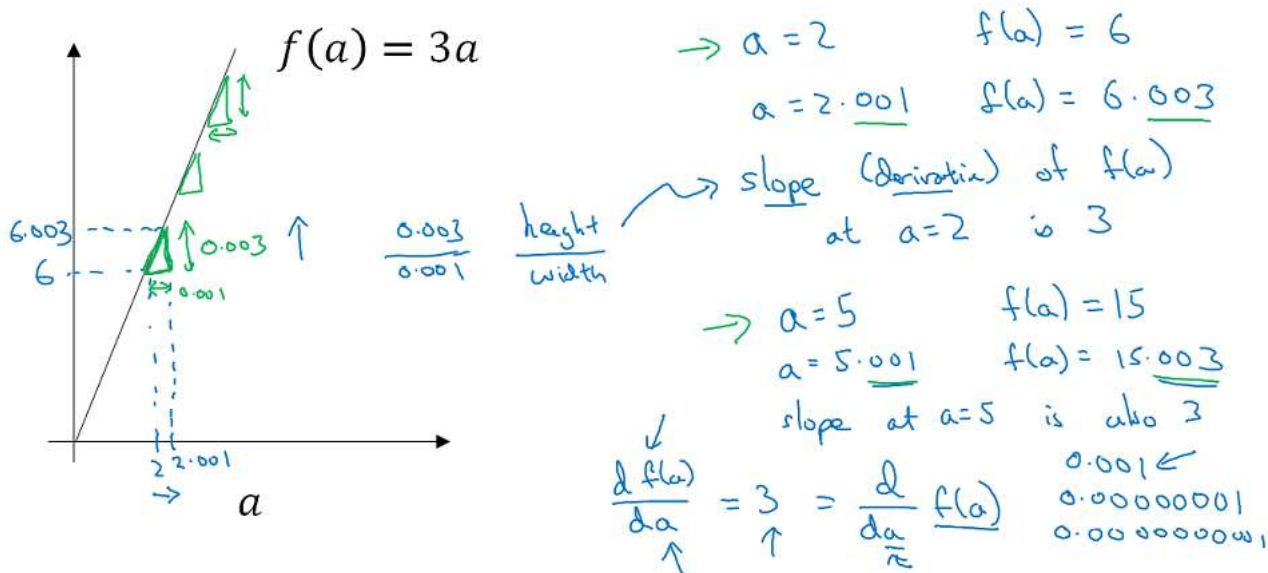 f(a) = 3a
6.003
6
0.003
0.001
2
2.001
a
0.003
0.001
height
width
a = 2 f(a) = 6
a = 2.001 f(a) = 6.003
slope (derivative) of f(a)
at a=2 is 3
a = 5 f(a) = 15
a = 5.001 f(a) = 15.003
slope at a=5 is also 3
d f(a)
da
= 3 =
d
da
f(a)
0.001
0.00000001